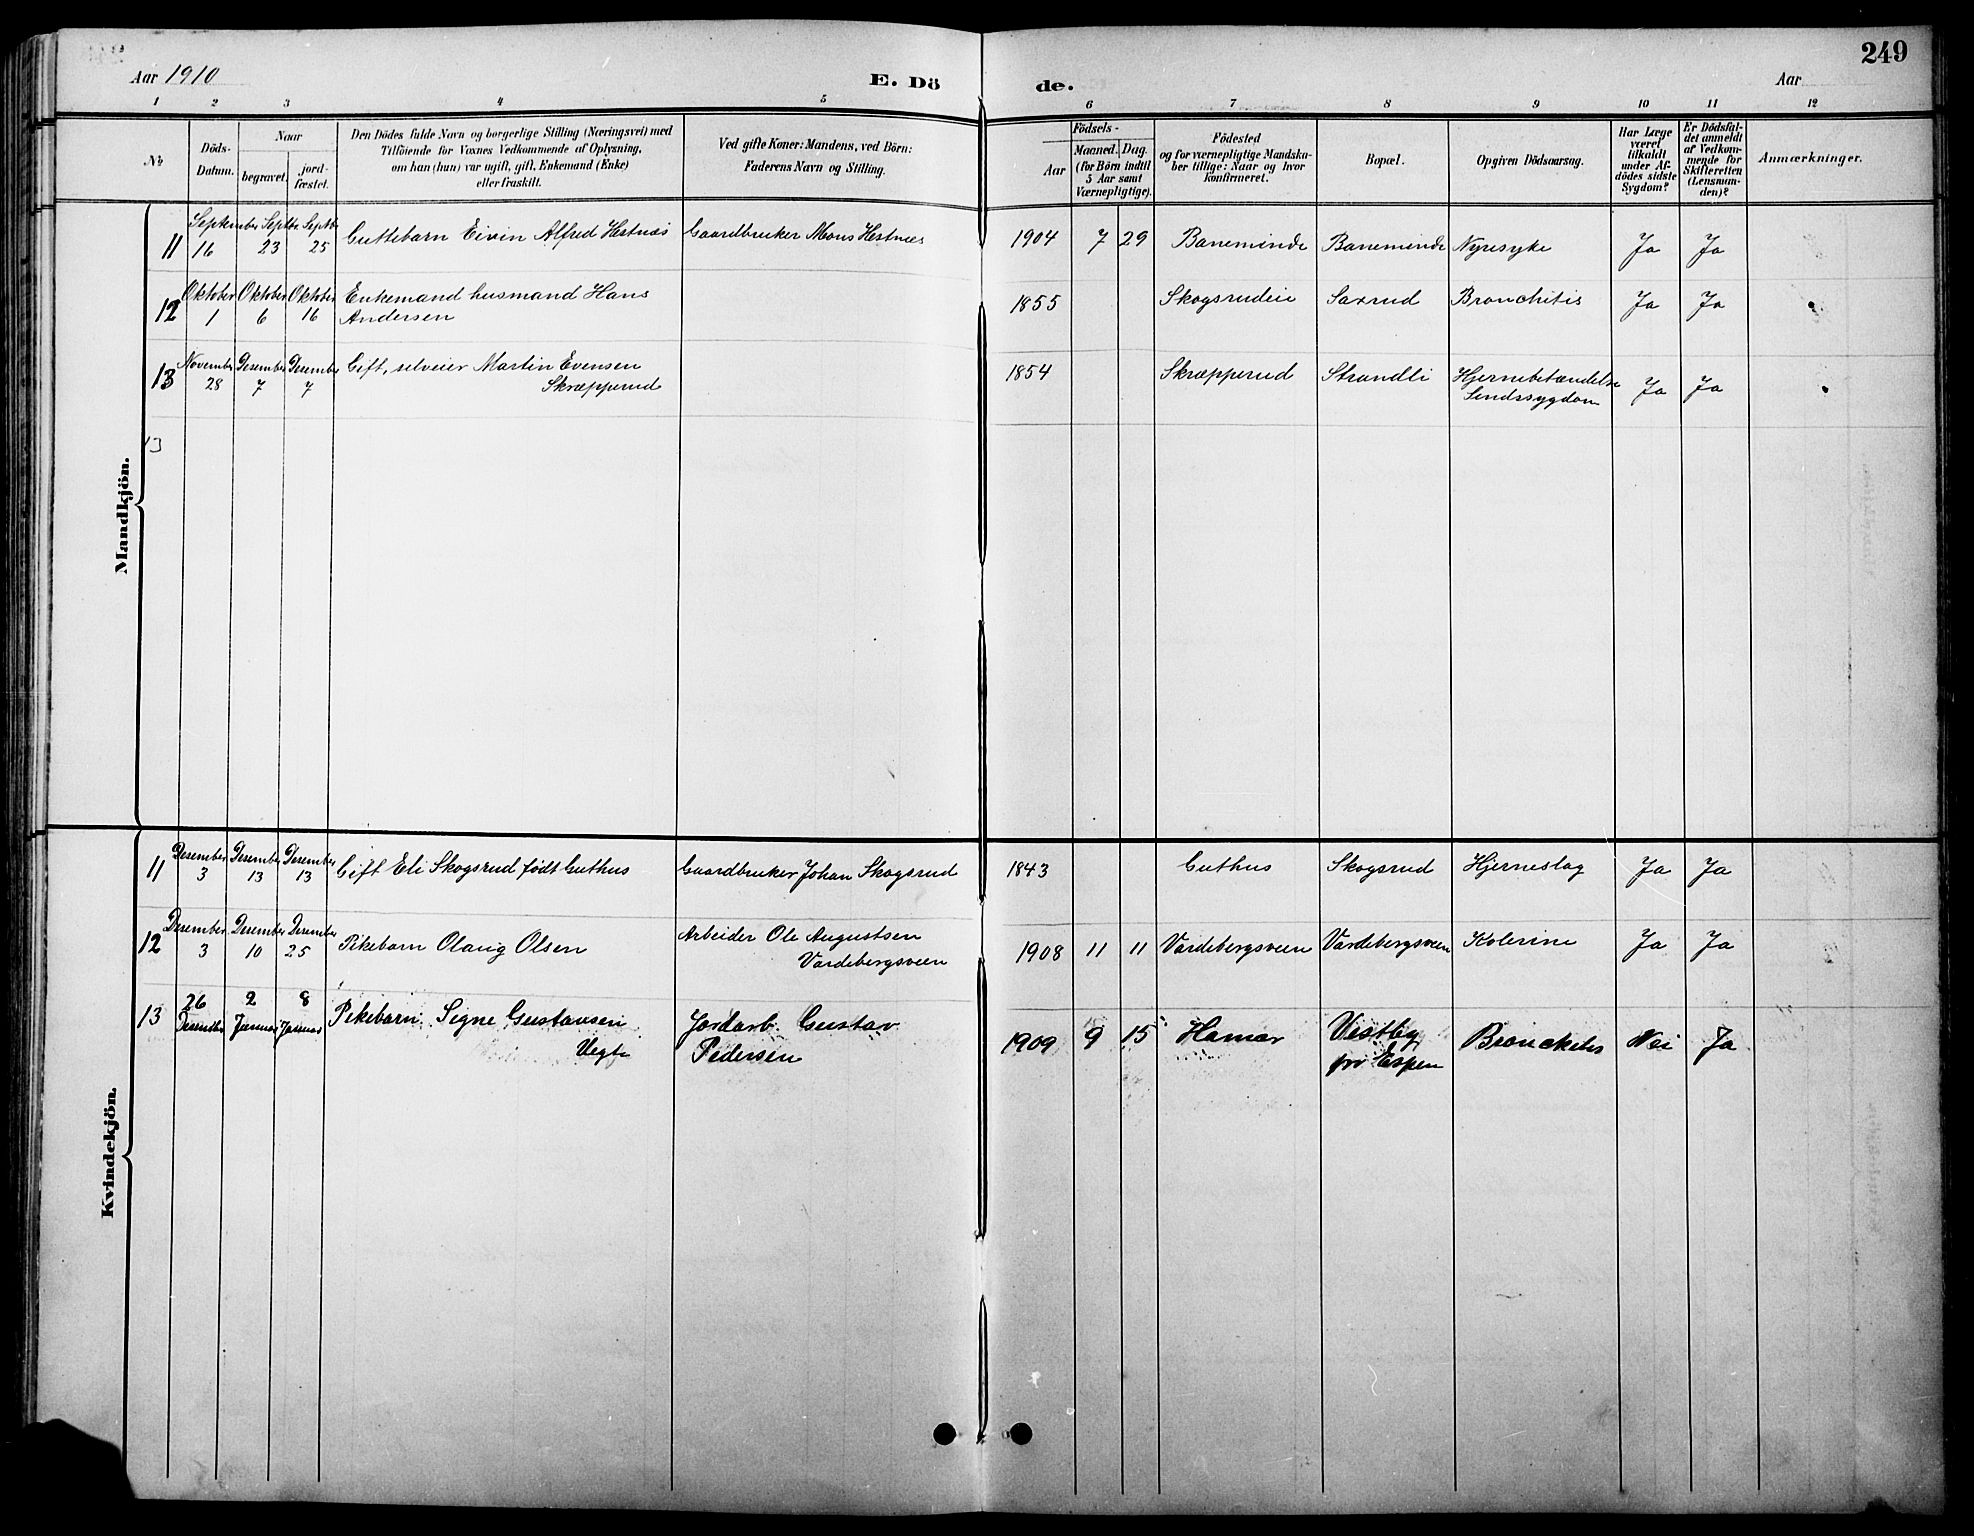 249
Aar 1910
E. Dö
de.
Aar
1 2 3 4 5 6 7 8 9 10 11 12
No
Döds-
Datum.
Naar
begravet.
jord-
fæstet.
Den Dödes fulde Navn og borgerlige Stilling (Næringsvei) med
Tilföiende for Voxnes Vedkommende af Oplysning,
om han (hun) var ugift, gift, Enkemand (Enke)
eller fraskilt.
Ved gifte Koner: Mandens, ved Börn:
Faderens Navn og Stilling.
Födsels-
Aar
Maaned.
Dag.
(for Börn indtil
5 Aar samt
Værnepligtige).
Födested
og for værnepligtige Mandska-
ber tillige: Naar og hvor
konfirmeret.
Bopæl.
Opgiven Dödsaarsag.
Har Læge
været
tilkaldt
under Af-
dödes sidste
Sygdom?
Er Dödsfal-
det anmeldt
af Vedkom-
mende for
Skifteretten
(Lensman-
den)?
Anmærkninger.
Mandkjön.
11 September 16 Septbr 23 Septbr 25 Guttebarn Eivin Alfred Hestnæs Gaardbruker Mons Hestnæs 1904 7 29 Baneminde Baneminde Nyresyke Ja Ja
12 Oktober 1 Oktober 6 Oktober 16 Enkemand husmand Hans
Andersen 1855 Skogsrudeie Saxrud Bronchitis Ja Ja
13 November 28 Desember 7 Desember 7 Gift, selveier Martin Evensen
Skræpperud 1854 Skræpperud Strandli Hjernebetændelse
Sindssygdom Ja Ja
13
Kvindekjön.
11 Desember 3 Desember 13 Desember 13 Gift Eli Skogsrud født Guthus Gaardbruker Johan Skogsrud 1843 Guthus Skogsrud Hjerneslag Ja Ja
12 Desember 3 Desember 10 Desember 25 Pikebarn Olaug Olsen Arbeider Ole Augustsen
Vardebergsveen 1908 11 11 Vardebergsveen Vardebergsveen Kolerine Ja Ja
13 26 Desember 2 Januar 8 Januar Pikebarn Signe Gustavsen
Jordarb. Gustav
Pedersen 1909 9 15 Hamar Vestby
Espen Bronchitis Nei Ja